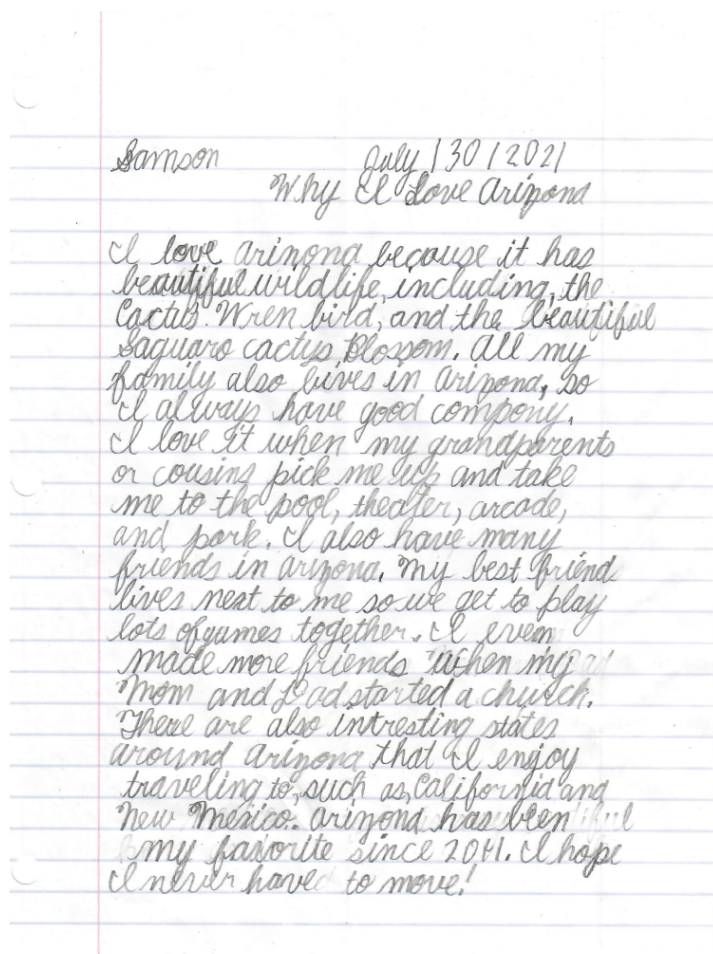 Samson July/30/2021
Why I Love Arizona
I love Arizona because it has
beautiful wildlife, including, the
Cactus Wren bird, and the beautiful
Saguaro cactus Blossom. All my
family also lives in Arizona, so
I always have good company.
I love it when my grandparents
or cousins pick me up and take
me to the pool, theater, arcade,
and park. I also have many
friends in Arizona. My best friend
lives next to me so we get to play
lots of games together. I even
made more friends when my
Mom and Dad started a church.
There are also intresting states
around Arizona that I enjoy
traveling to, such as, California and
New Mexico. Arizona has been
my favorite since 2011. I hope
I never have to move!